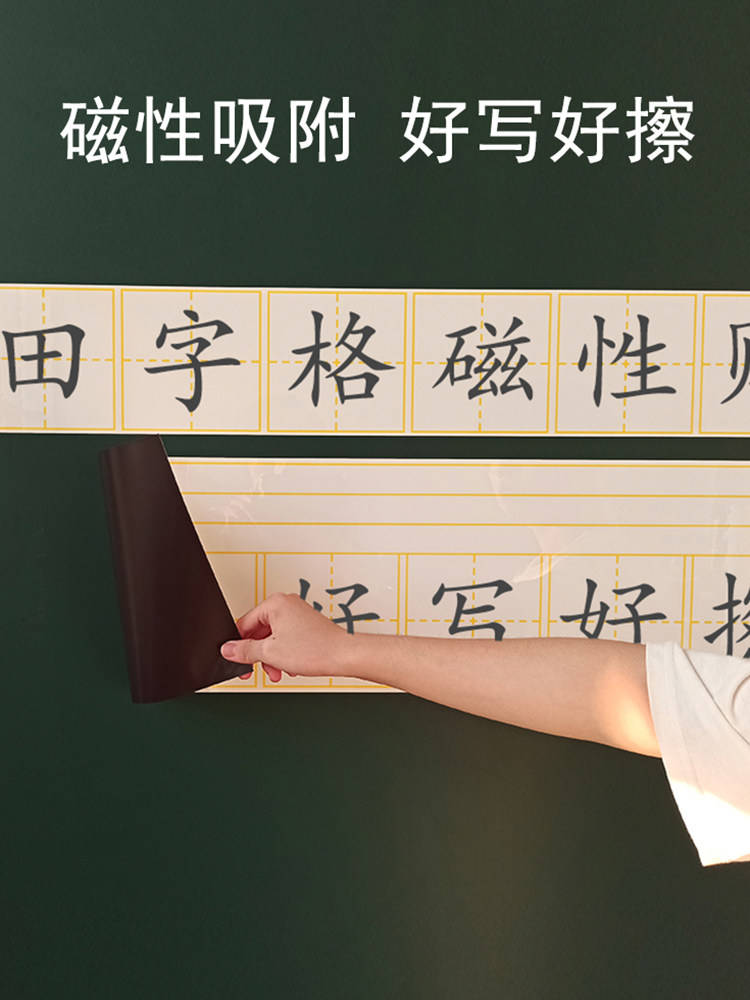 磁性吸附 好写好擦
田字格磁性
好写好